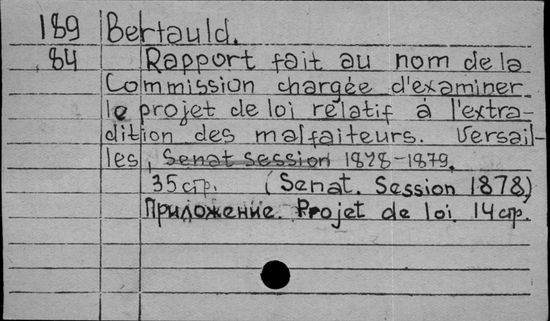 189 Bertauld.
84 Rapport fait au nom de la
Commission chargée d'examiner
le projet de loi relatif á l'extra-
dition des malfaiteurs. Versail-
les, Senat session 1878-1879.
35 стр. (Senat. Session 1878)
Приложение. Projet de loi. 14 стр.